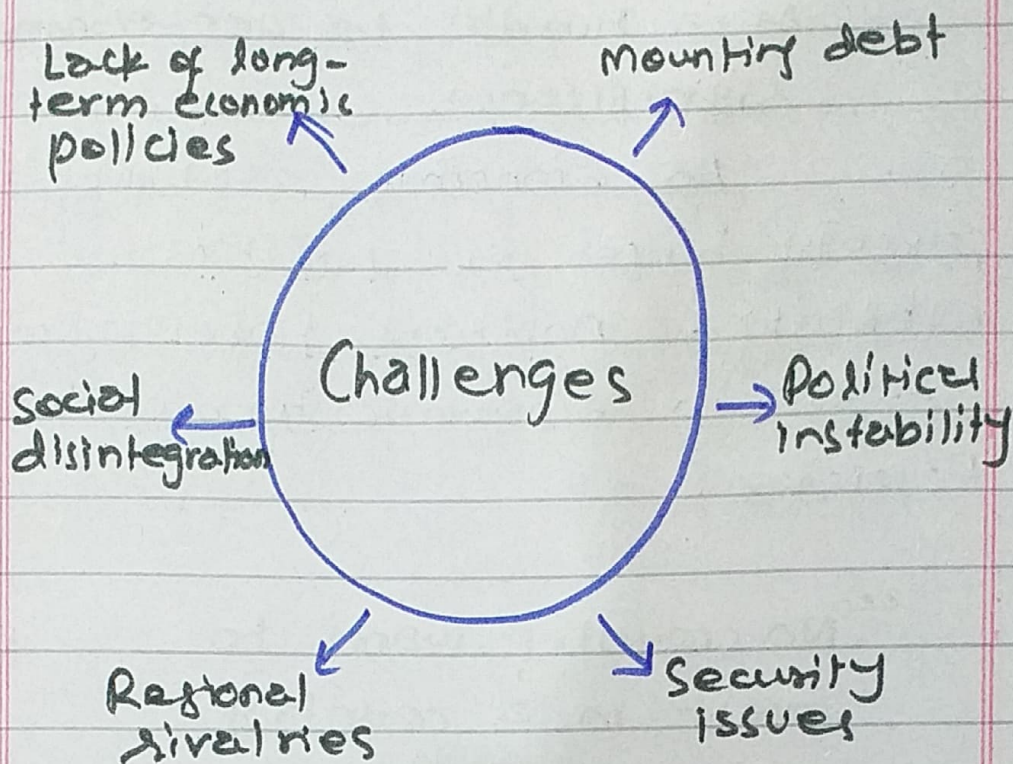 Lack of long-
term economic
policies
Mounting debt
Challenges
Social
disintegration
Political
instability
Regional
rivalries
Security
issues